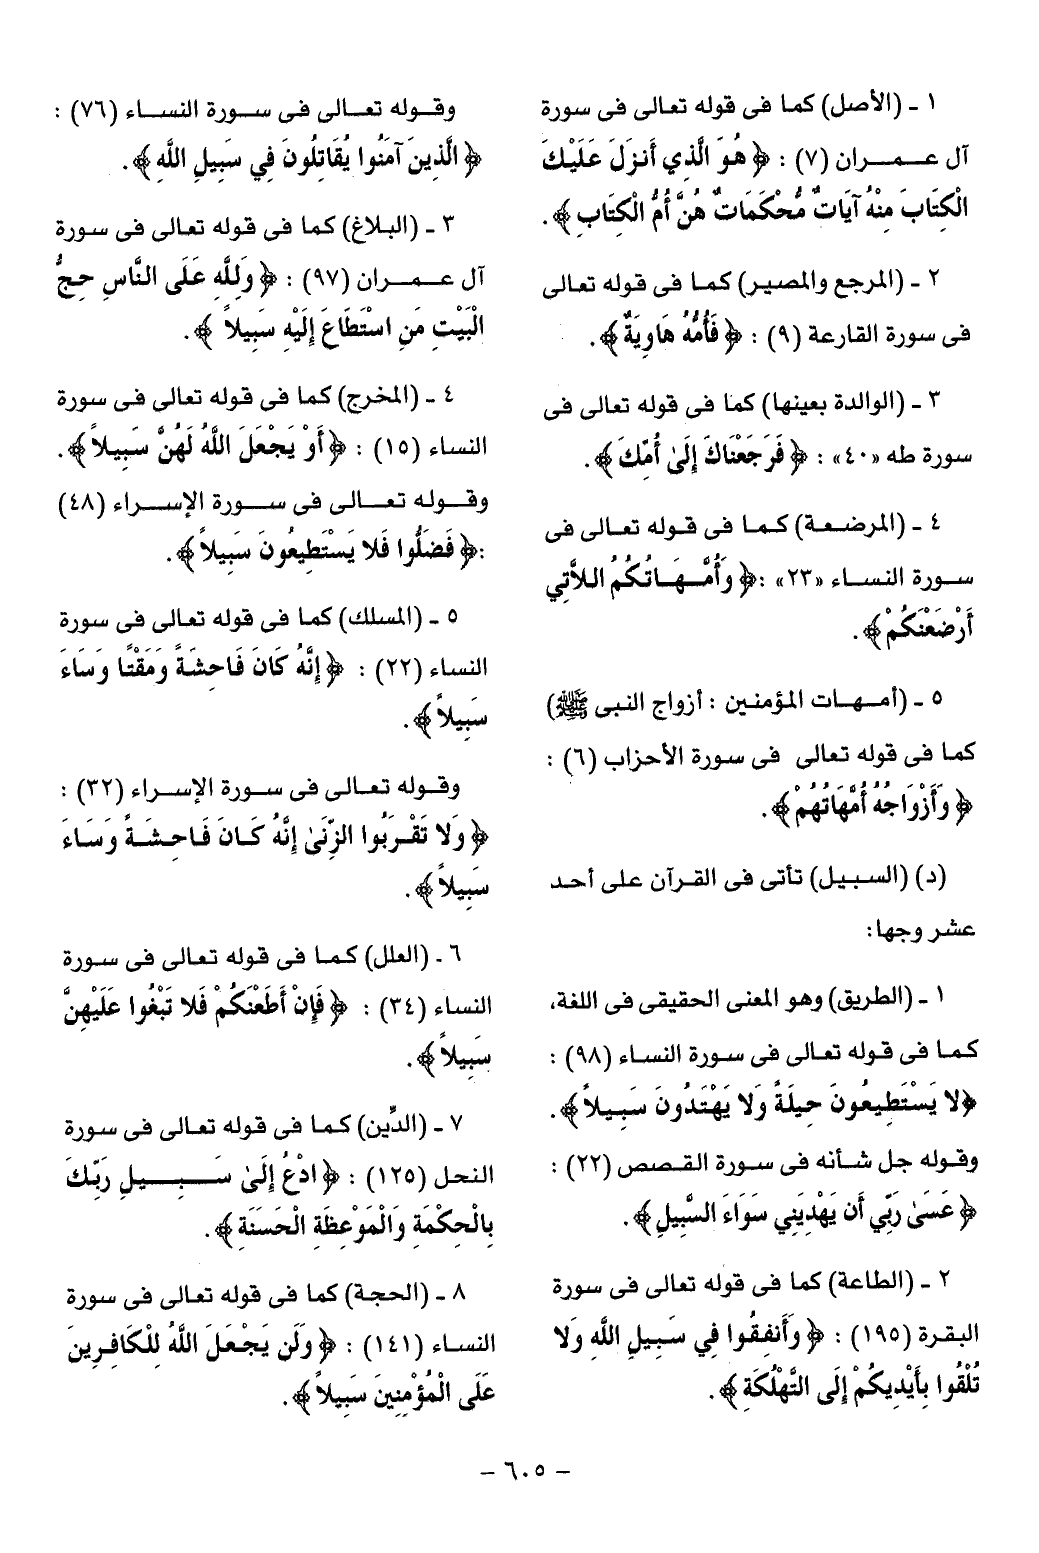 ١ ـ (الأصل) كما فى قوله تعالى فى سورة
آل عمران (٧) : ﴿ هُوَ الَّذِي أَنزَلَ عَلَيْكَ
الْكِتَابَ مِنْهُ آيَاتٌ مُّحْكَمَاتٌ هُنَّ أُمُّ الْكِتَابِ ﴾.
٢ ـ (المرجع والمصير) كما فى قوله تعالى
فى سورة القارعة (٩) : ﴿ فَأُمُّهُ هَاوِيَةٌ ﴾.
٣ ـ (الوالدة بعينها) كما فى قوله تعالى فى
سورة طه «٤٠» : ﴿ فَرَجَعْنَاكَ إِلَىٰ أُمِّكَ ﴾.
٤ ـ (المرضعة) كما فى قوله تعالى فى
سورة النساء «٢٣» :﴿ وَأُمَّهَاتُكُمُ اللاَّتِي
أَرْضَعْنَكُمْ ﴾.
٥ ـ (أمهات المؤمنين : أزواج النبى ﷺ)
كما فى قوله تعالى فى سورة الأحزاب (٦) :
﴿ وَأَزْوَاجُهُ أُمَّهَاتُهُمْ ﴾.
(د) (السبيل) تأتى فى القرآن على أحد
عشر وجها:
١ ـ (الطريق) وهو المعنى الحقيقى فى اللغة،
كما فى قوله تعالى فى سورة النساء (٩٨) :
﴿لا يَسْتَطِيعُونَ حِيلَةً وَلا يَهْتَدُونَ سَبِيلاً ﴾.
وقوله جل شأنه فى سورة القصص (٢٢) :
﴿ عَسَىٰ رَبِّي أَن يَهْدِيَنِي سَوَاءَ السَّبِيلِ ﴾.
٢ ـ (الطاعة) كما فى قوله تعالى فى سورة
البقرة (١٩٥) : ﴿ وَأَنفِقُوا فِي سَبِيلِ اللَّهِ وَلا
تُلْقُوا بِأَيْدِيكُمْ إِلَى التَّهْلُكَةِ ﴾.
وقوله تعالى فى سورة النساء (٧٦) :
﴿ الَّذِينَ آمَنُوا يُقَاتِلُونَ فِي سَبِيلِ اللَّهِ ﴾.
٣ ـ (البلاغ) كما فى قوله تعالى فى سورة
آل عمران (٩٧) : ﴿ وَلِلَّهِ عَلَى النَّاسِ حِجُّ
الْبَيْتِ مَنِ اسْتَطَاعَ إِلَيْهِ سَبِيلاً ﴾.
٤ ـ (المخرج) كما فى قوله تعالى فى سورة
النساء (١٥) : ﴿ أَوْ يَجْعَلَ اللَّهُ لَهُنَّ سَبِيلاً ﴾.
وقوله تعالى فى سورة الإسراء (٤٨)
:﴿ فَضَلُّوا فَلا يَسْتَطِيعُونَ سَبِيلاً ﴾.
٥ ـ (المسلك) كما فى قوله تعالى فى سورة
النساء (٢٢) : ﴿ إِنَّهُ كَانَ فَاحِشَةً وَمَقْتًا وَسَاءَ
سَبِيلاً ﴾.
وقوله تعالى فى سورة الإسراء (٣٢) :
﴿ وَلا تَقْرَبُوا الزِّنَىٰ إِنَّهُ كَانَ فَاحِشَةً وَسَاءَ
سَبِيلاً ﴾.
٦ ـ (العلل) كما فى قوله تعالى فى سورة
النساء (٣٤) : ﴿ فَإِنْ أَطَعْنَكُمْ فَلا تَبْغُوا عَلَيْهِنَّ
سَبِيلاً ﴾.
٧ ـ (الدِّين) كما فى قوله تعالى فى سورة
النحل (١٢٥) : ﴿ ادْعُ إِلَىٰ سَبِيلِ رَبِّكَ
بِالْحِكْمَةِ وَالْمَوْعِظَةِ الْحَسَنَةِ ﴾.
٨ ـ (الحجة) كما فى قوله تعالى فى سورة
النساء (١٤١) : ﴿ وَلَن يَجْعَلَ اللَّهُ لِلْكَافِرِينَ
عَلَى الْمُؤْمِنِينَ سَبِيلاً ﴾.
– ٦٠٥ –